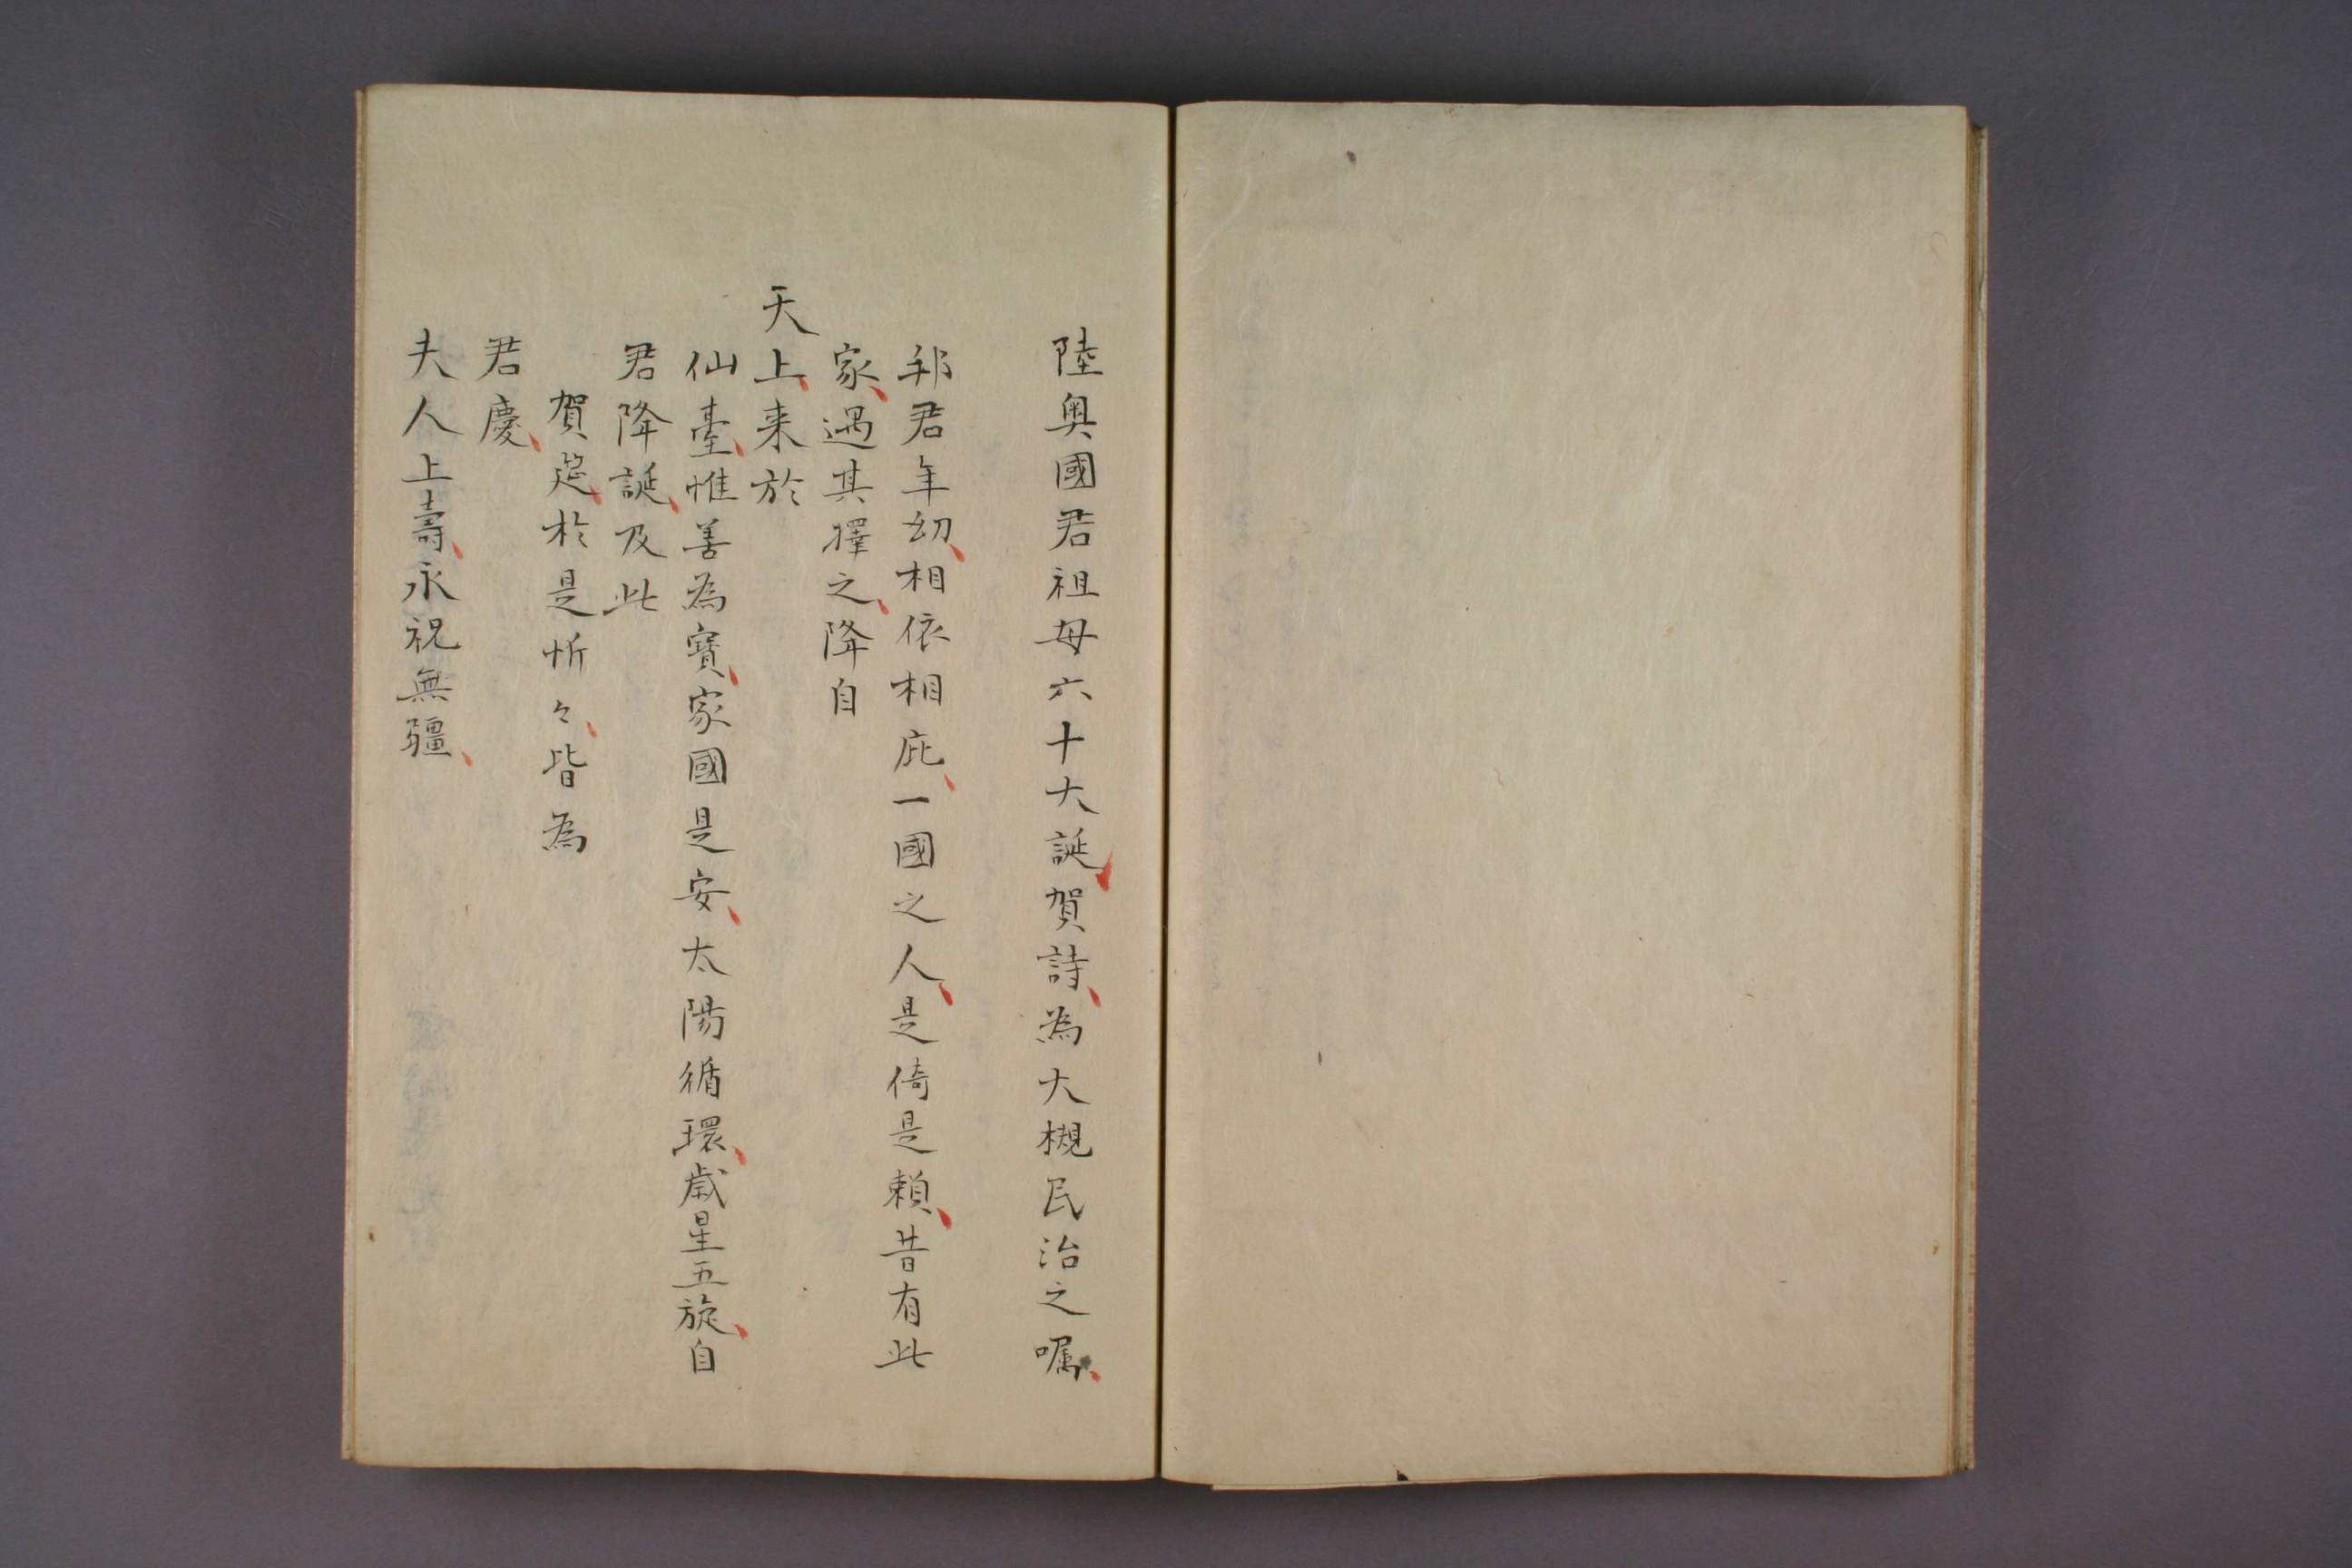 陸奥國君祖母六十大誕賀詩為大槻民治之嘱
邦君年幼相依相庇一國之人是倚是賴昔有此
家遇其擇之降自
天上来於
仙臺惟善為寳家國是安太陽循環歳星五旋自
君降誕及此
賀筵於是忻々皆為
君慶
夫人上壽永祝無疆